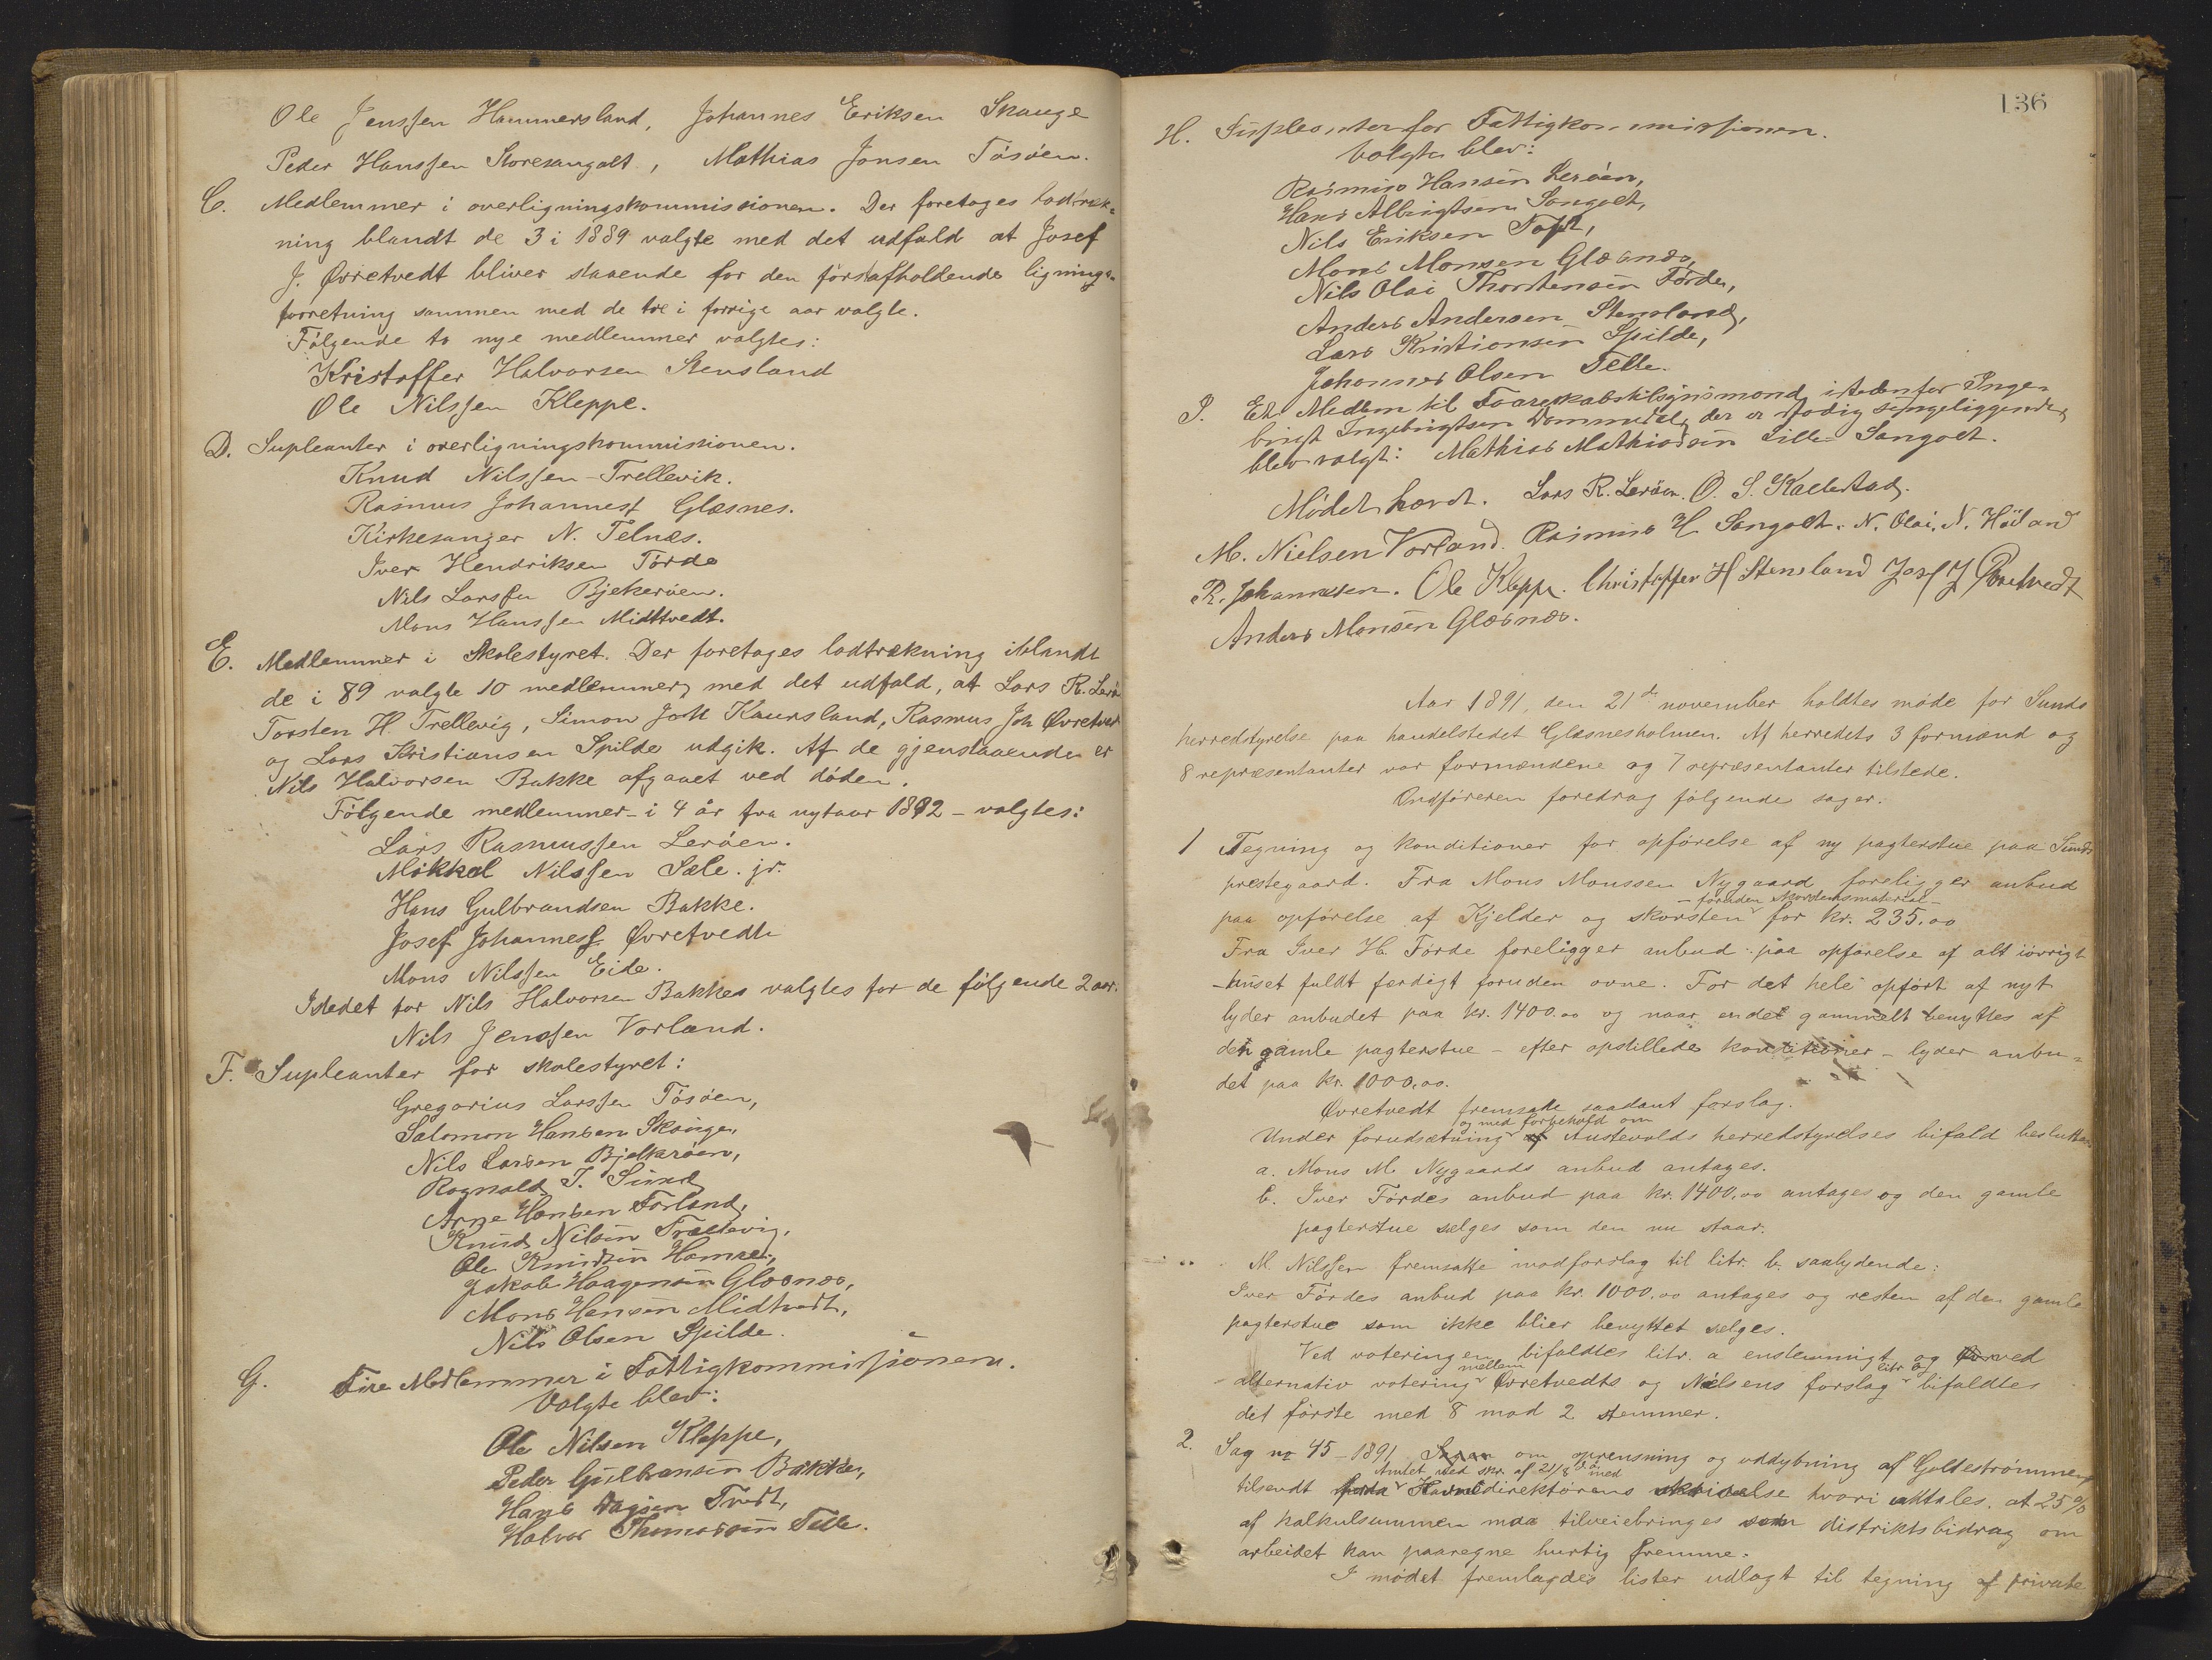 Ole Jenssen Hammersland, Johannes Eriksen Skauge
Peder Hanssen Storesangolt, Mathias Jonsen Tösöen.
C. Medlemmer i overligningskommissionen. Der foretages lodtræk-
ning blandt de 3 i 1889 valgte med det udfald at Josef
J. Øvretvedt bliver staaende for den förstafholdende lignings-
forretning sammen med de tre i forrige aar valgte.
Fölgende to nye medlemmer valgtes:
Kristoffer Halvorsen Stensland
Ole Nilssen Kleppe.
D. Supleanter i overligningskommissionen.
Knud Nilssen Trellevik.
Rasmus Johanness Glæsnes.
Kirkesanger N. Telnæs.
Iver Hendriksen Förde
Nils Larssen Bjekeröen.
Mons Hanssen Midttvedt.
E. Medlemmer i Skolestyret. Der foretages lodtrækning iblandt
de i 89 valgte 10 medlemmer, med det udfald, at Lars R. Lerö
Torsten H. Trellevig, Simon Joh Kausland, Rasmus Joh Øvretvedt
og Lars Kristiansen Spilde udgik. Af de gjenstaaende er
Nils Halvorsen Bakke afgaaet ved döden.
Fölgende medlemmer - i 4 år fra nytaar 1892 - valgtes:
Lars Rasmussen Leröen.
Mikkal Nilssen Sæle. jr.
Hans Gulbrandsen Bakke.
Josef Johanness Øvretvedt
Mons Nilssen Eide.
Istedet for Nils Halvorsen Bakke valgtes for de fölgende 2 aar.
Nils Jenssen Vorland.
F. Supleanter for skolestyret:
Gregorius Larssen Tösöen,
Salomon Hansen Skauge,
Nils Larsen Bjelkeröen,
Ragnald J. Sund,
Arne Hansen Forland,
Knud Nilsen Trællevig,
Ole Knudsen Hamre,
Jakob Haagensen Glæsnæs,
Mons Hansen Midtvedt,
Nils Olsen Spilde.
G. Fire Medlemmer i Fattigkommissionen.
Valgte blev:
Ole Nilsen Kleppe,
Peder Gulbransen Bakke,
Hans Dagsen Tvedt,
Halvor Thomassen Telle.
136
H. Supleanter for Fattigkommissionen.
Valgte blev:
Rasmus Hansen Leröen,
Hans Albrigtsen Sangolt,
Nils Eriksen Toft,
Mons Monsen Glæsnæs,
Nils Olai Thorstensen Förde,
Anders Andersen Stensland,
Lars Kristiansen Spilde,
Johannes Olsen Telle.
I. Et Medlem til Faareskabstilsynsmand istedenfor Inge-
brigt Ingebrigtsen Dommedal, der er stadig sengeliggende,
blev valgt: Mathias Mathiassen Lille Sangolt.
Mödet hævet. Lars R. Leröen. O. S. Kallestad.
M. Nielsen Vorland. Rasmus H. Sangolt. N. Olai. N. Höiland
R. Johannesen. Ole Kleppe. Christoffer H Stensland Josef J Øvretvedt
Anders Monsen Glæsnæs.
Aar 1891, den 21de november holdtes möde for Sunds
herredstyrelse paa handelstedet Glæsnesholmen. Af herredets 3 formænd og
8 repræsentanter var formændene og 7 repræsentanter tilstede.
Ordföreren foredrog fölgende sager:
1 Tegning og konditioner for opförelse af ny pagterstue paa Sunds
prestegaard. Fra Mons Monssen Nygaard foreligger anbud
- foruden skorstensmaterial -
paa opförelse af Kjelder og skorsten for kr. 235.00
Fra Iver H. Förde foreligger anbud paa opförelse af alt iövrigt
- huset fuldt færdigt foruden ovne. For det hele opfört af nyt
lyder anbudet paa kr. 1400.00 og naar endel gammelt benyttes af
den gamle pagterstue - efter opstillede konditioner - lyder anbu-
det paa kr. 1000.00.
Øvretvedt fremsatte saadant forslag.
og med forbehold om
Under forudsætning af Austevolds herredstyrelses bifald besluttes
a. Mons M. Nygaards anbud antages.
b. Iver Fördes anbud paa kr. 1400.00 antages og den gamle
pagterstue sælges som den nu staar.
M. Nilssen fremsatte modforslag til litr. b. saalydende:
Iver Fördes anbud paa kr. 1000.00 antages og resten af den gamle
pagterstue som ikke blier benyttet sælges.
Ved voteringen bifaldtes litr. a enstemmigt og ved
mellem litr b
alternativ votering Øvretvedts og Nilsens forslag bifaldtes
det förste med 8 mod 2 stemmer.
2. Sag no 45 - 1891 om oprensning og uddybning af Golteströmmen
Amtet ved skr. af 21/8 med
tilsendt Havnedirektörens skrivelse hvori udtales. at 25%
af kalkulsummen maa tilveiebringes som distriktsbidrag om
arbeidet kan paaregne hurtig fremme.
I mödet fremlagdes lister udlagt til tegning af private